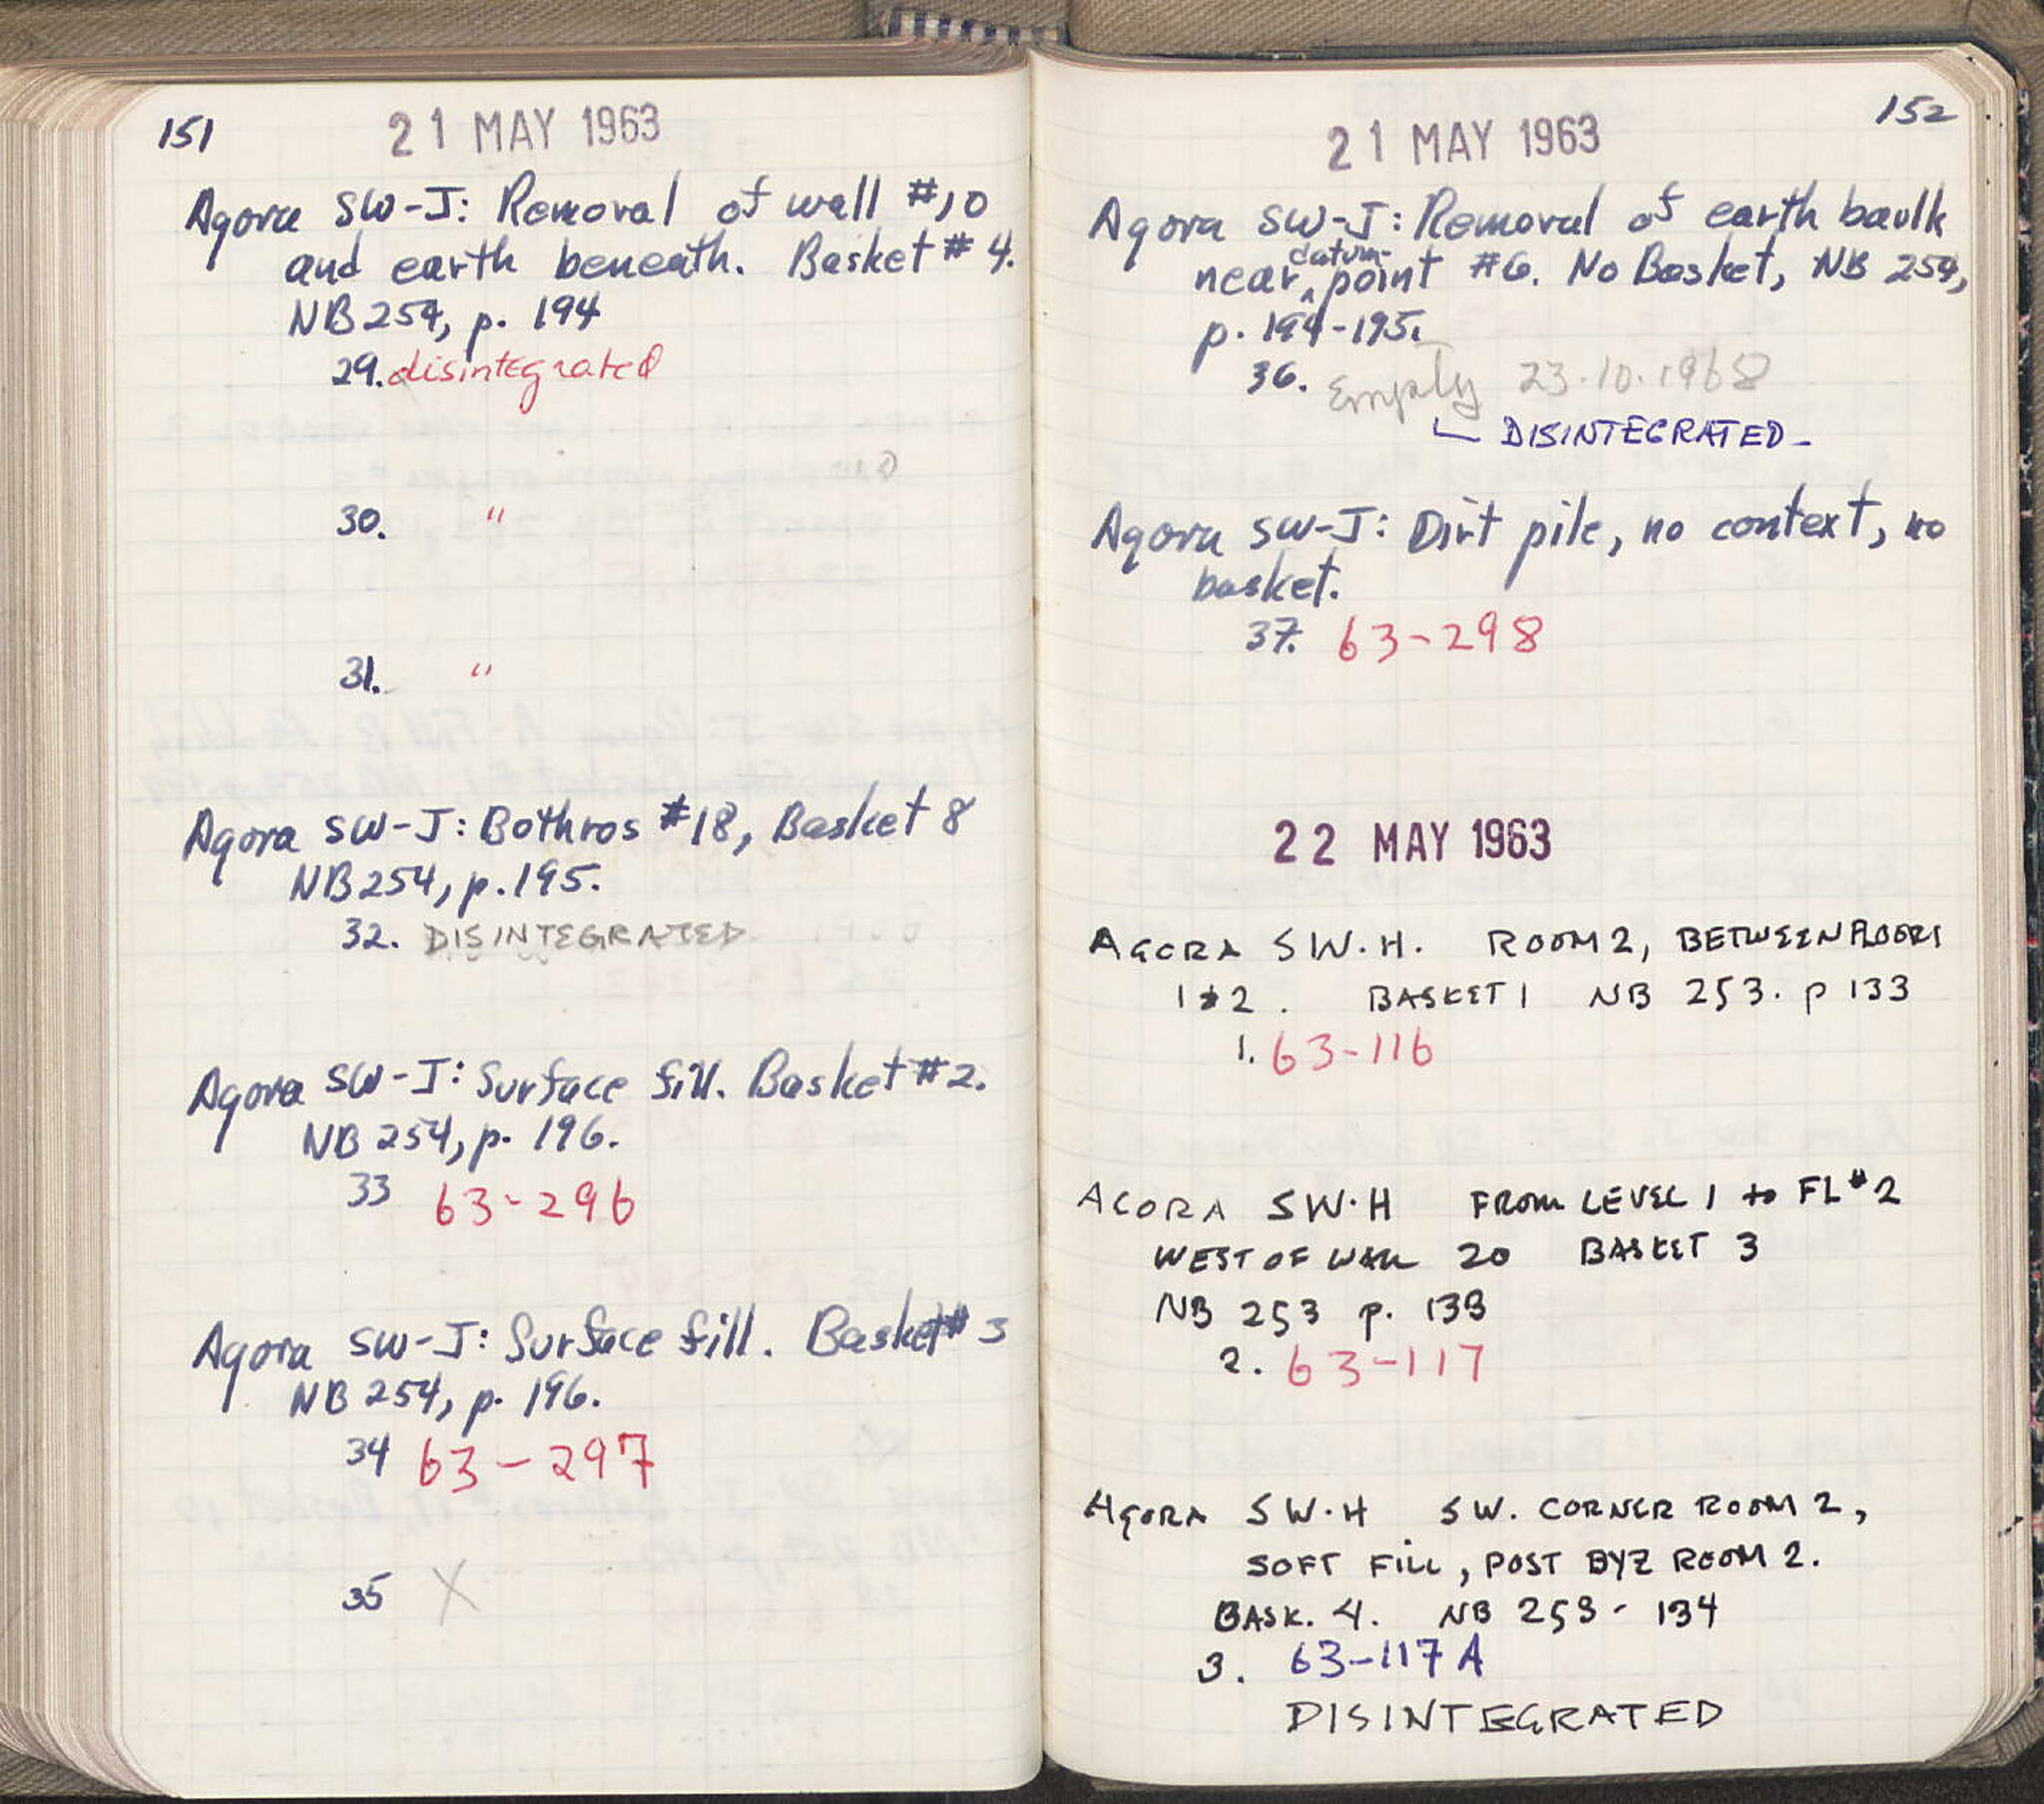 151
21 MAY 1963
Agora SW-J: Removal of wall #10
and earth beneath. Basket # 4.
NB 254, p. 194
29. disintegrated
30. "
31. "
Agora SW-J: Bothros #18, Basket 8
NB 254, p. 195.
32. DISINTEGRATED
Agora SW-J: Surface fill. Basket #2.
NB 254, p. 196.
33 63-296
Agora SW-J: Surface fill. Basket # 3
NB 254, p. 196.
34 63-297
35 X
152
21 MAY 1963
Agora SW-J: Removal of earth baulk
near datum point #6. No Basket, NB 254,
p. 194-195.
36. Empty 23.10.1968
DISINTEGRATED-
Agora SW-J: Dirt pile, no context, no
basket.
37. 63-298
22 MAY 1963
AGORA SW.H. ROOM 2, BETWEEN FLOORS
1 & 2. BASKET 1 NB 253. p 133
1. 63-116
AGORA SW.H FROM LEVEL 1 to FL # 2
WEST OF WALL 20 BASKET 3
NB 253 p. 133
2. 63-117
AGORA SW.H SW. CORNER ROOM 2,
SOFT FILL, POST BYZ ROOM 2.
BASK. 4. NB 253 - 134
3. 63-117 A
DISINTEGRATED